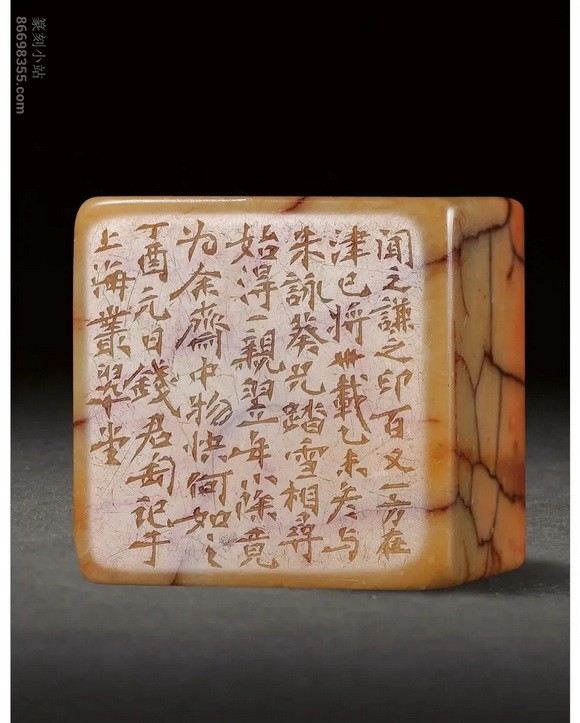 聞之謙之印百又一方在
津已將載乙未冬与
朱詠葵兄踏雪相尋
始得一親翌年小除竟
为余齋中物快何如之
丁酉元日錢君匋記于
上海叢翠堂
篆刻小站
86698355.com